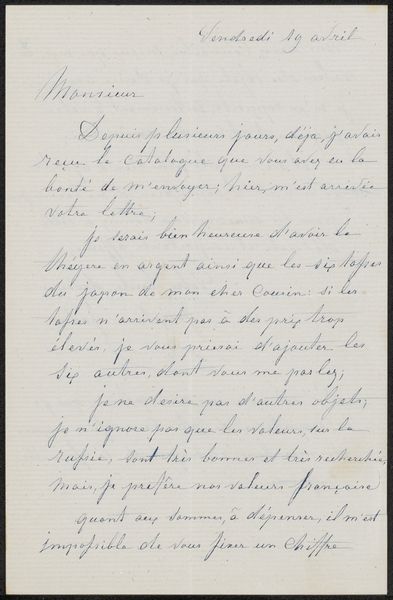 Vendredi 19 avril
Monsieur
Depuis plusieurs jours, déja, j'avais
reçu le catalogue que vous avez eu la
bonté de m'envoyer; hier, m'est arrivée
votre lettre;
je serais bien heureuse d'avoir la
théyère en argent ainsi que les six tasses
du japon de mon cher Cousin: si les
tasses n'arrivent pas à des prix trop
élevés, je vous prierai d'ajouter les
six autres, dont vous me parlez;
je ne désire pas d'autres objets;
je n'ignore pas que les valeurs, sur la
russie, sont très bonnes et très recherchées,
mais, je préfère nos valeurs française
quant aux sommes, à dépenser, il m'est
impossible de vous fixer un chiffre